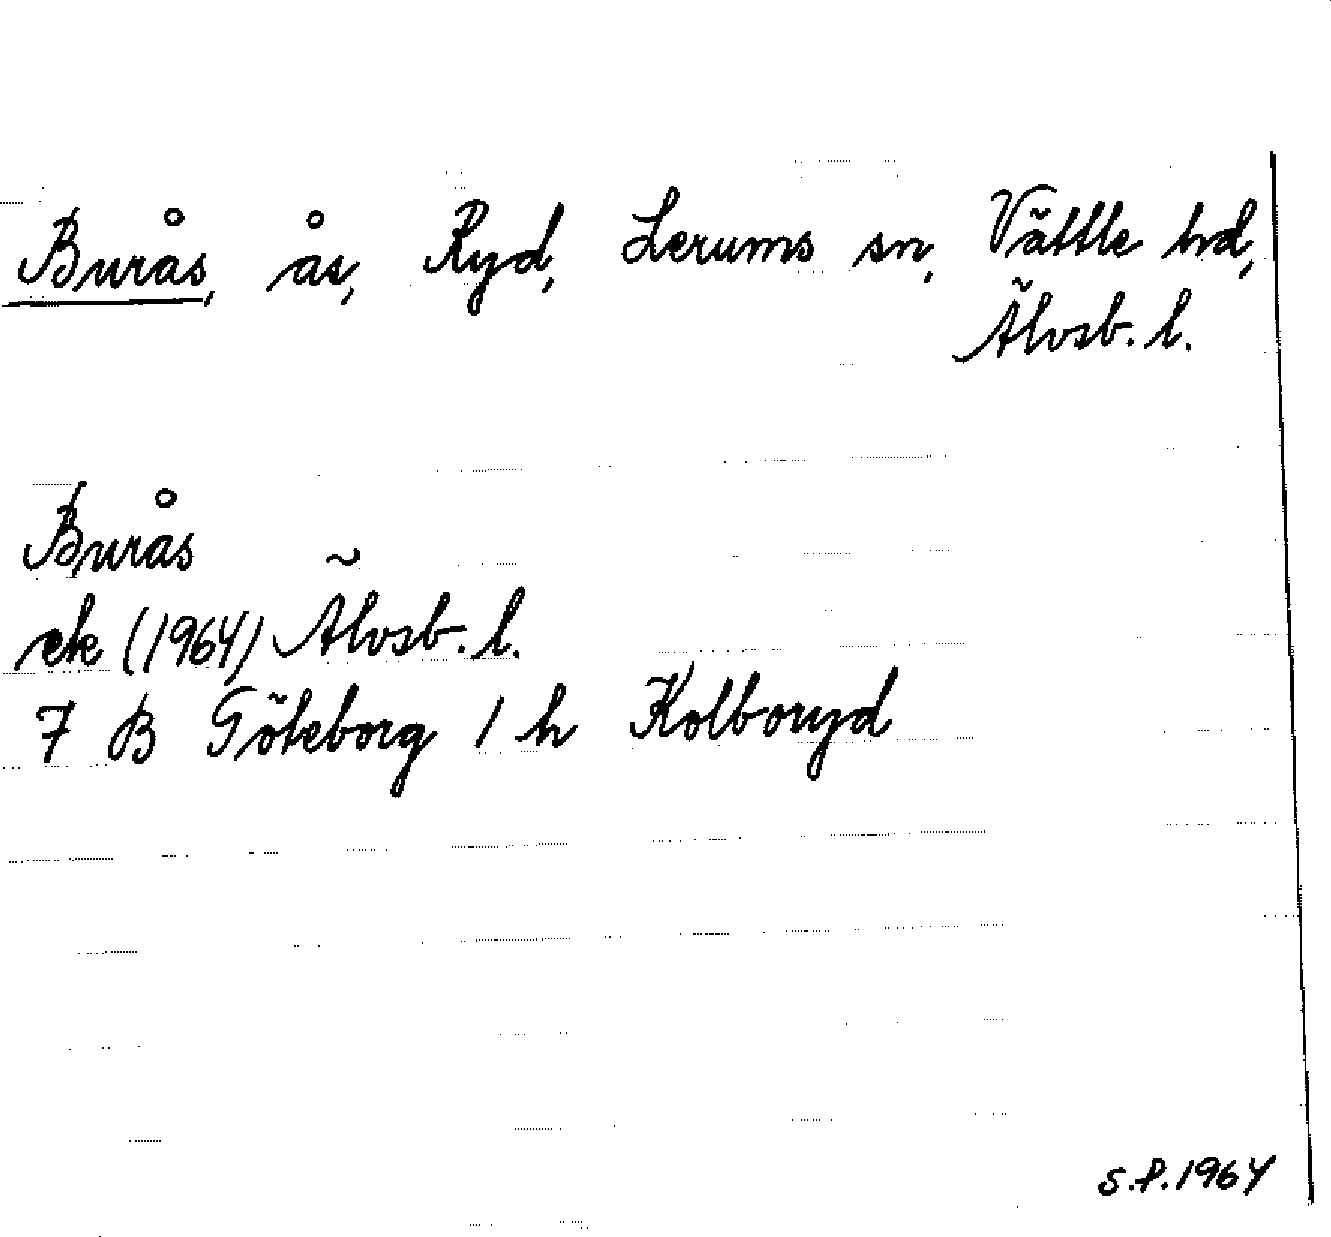 Burås, ås, Ryd, Lerums sn, Vättle hd,
Älvsb. l.
Burås
ek (1964) Älvsb. l.
7 B Göteborg 1 h Kolboryd
S.F. 1964